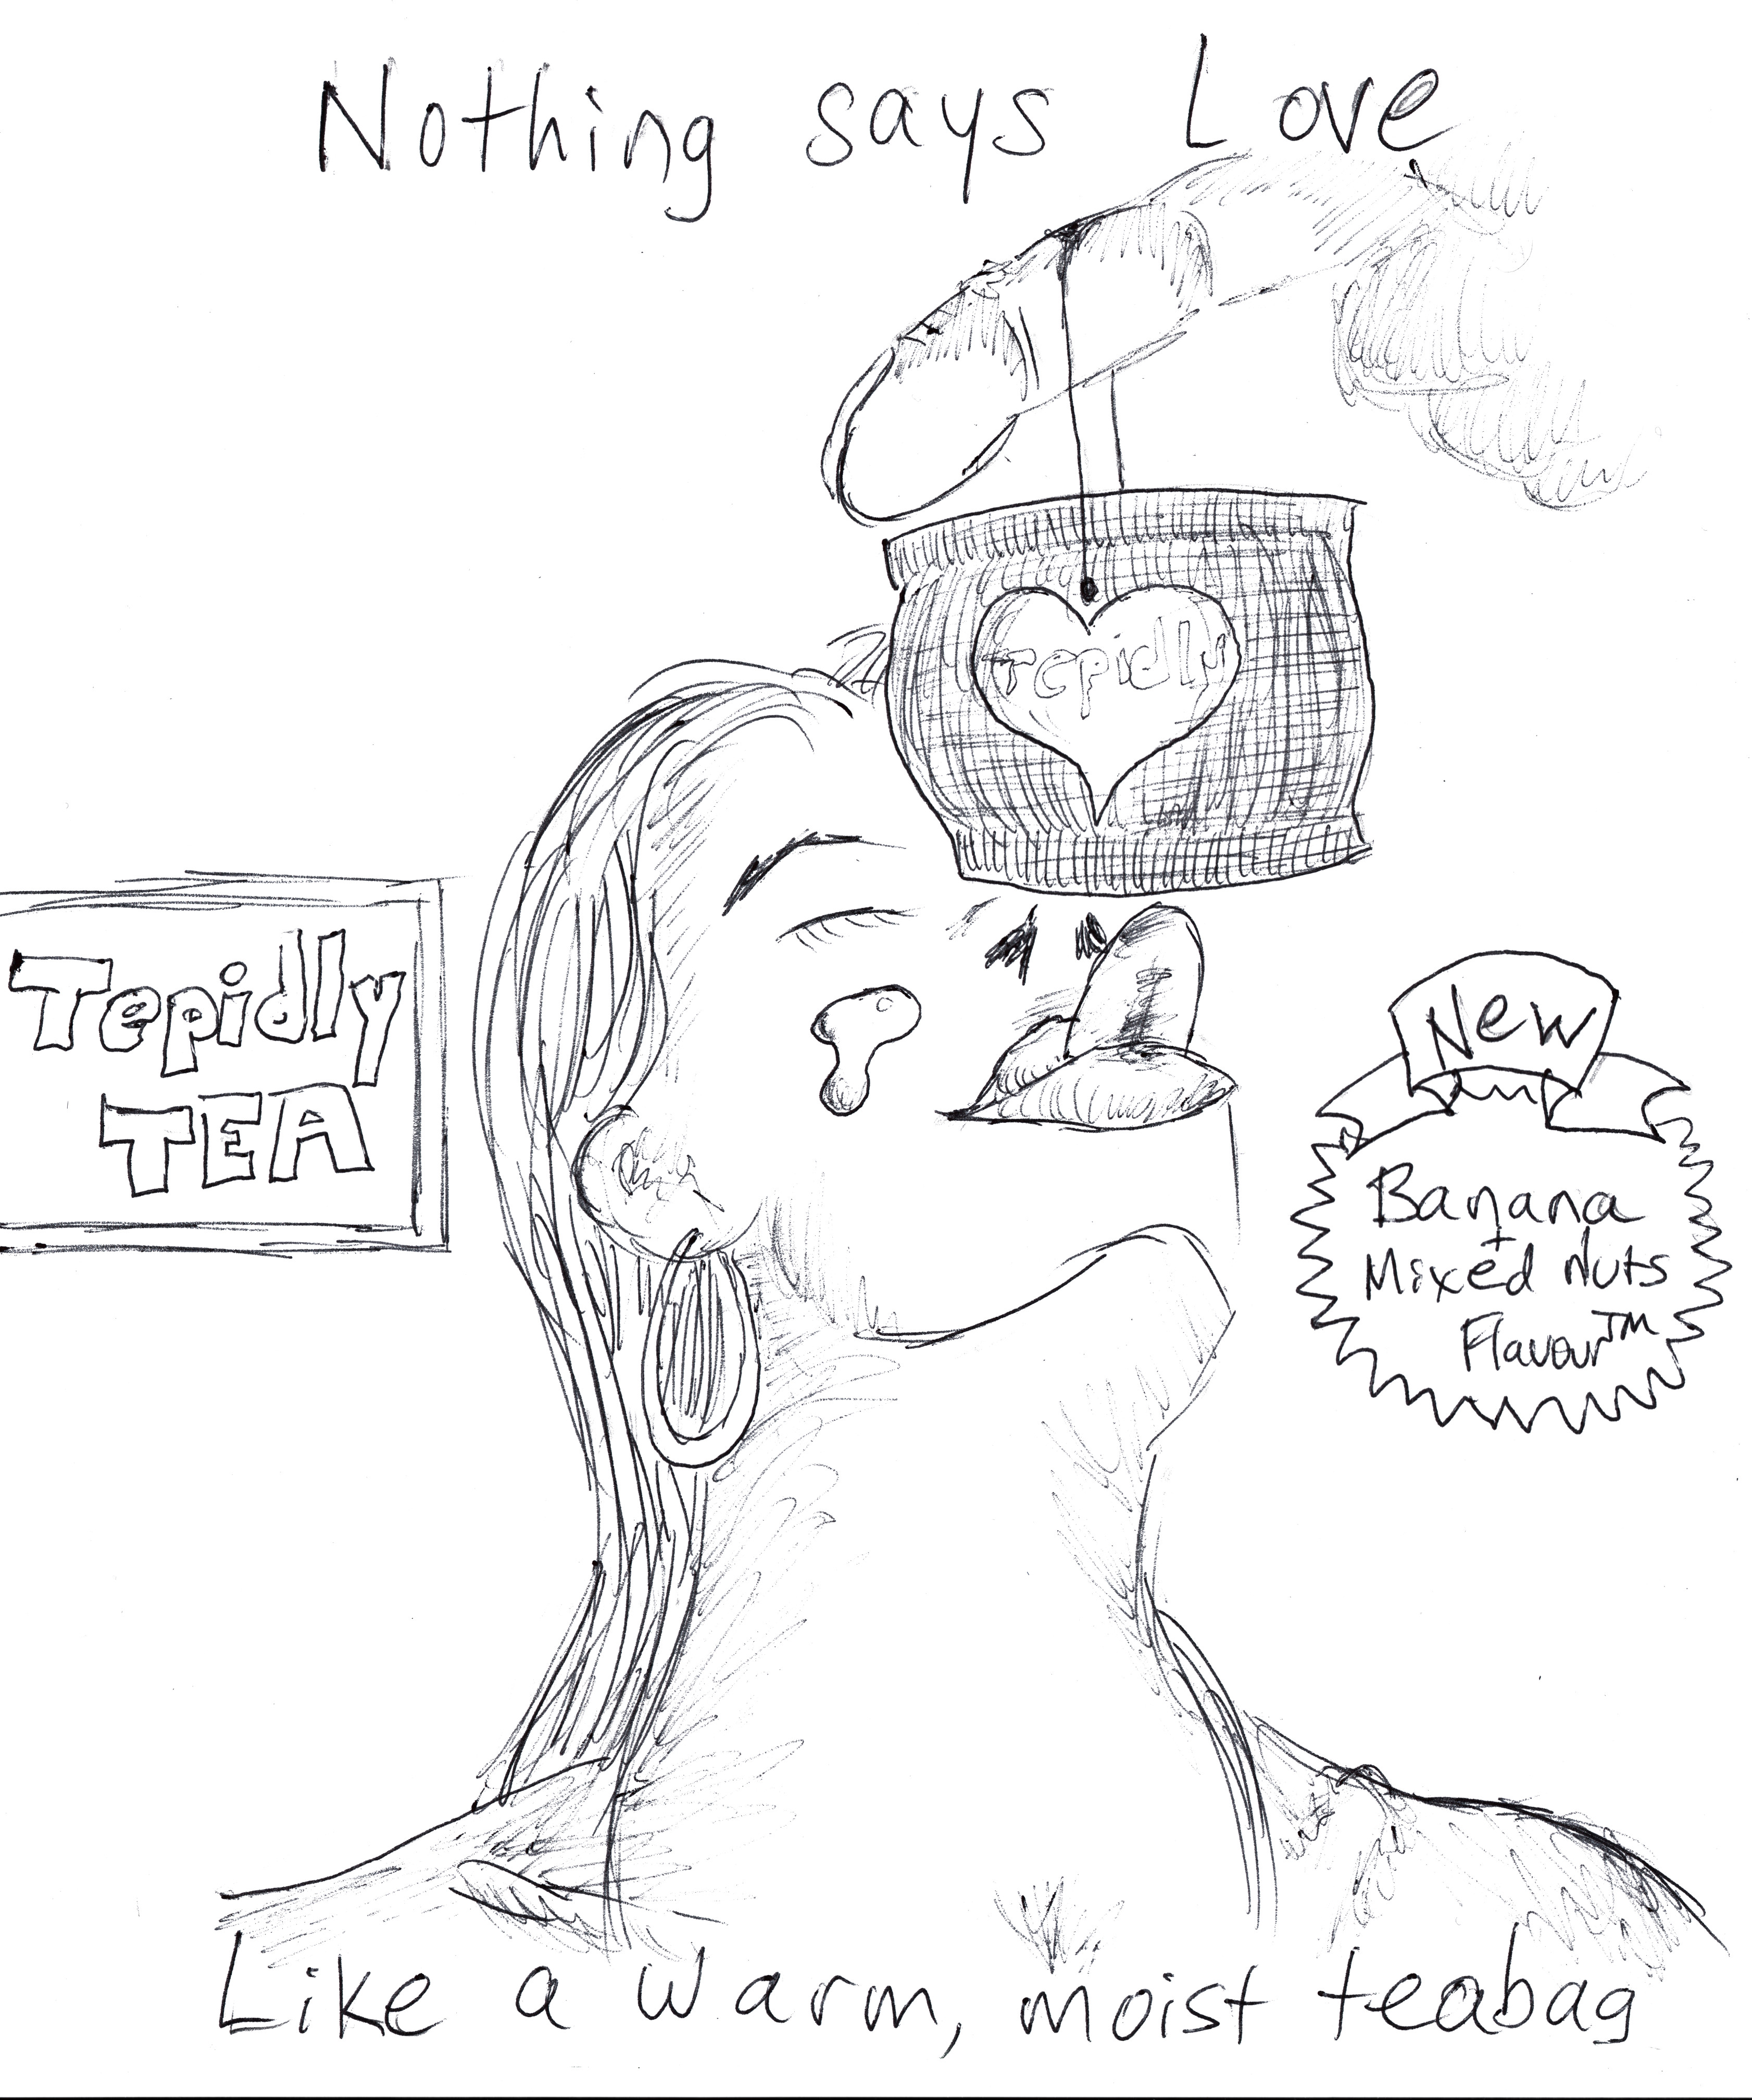 Nothing says Love
Tepidly
Tepidly
TEA
New
Banana
+
Mixed Nuts
Flavour™
Like a warm, moist teabag